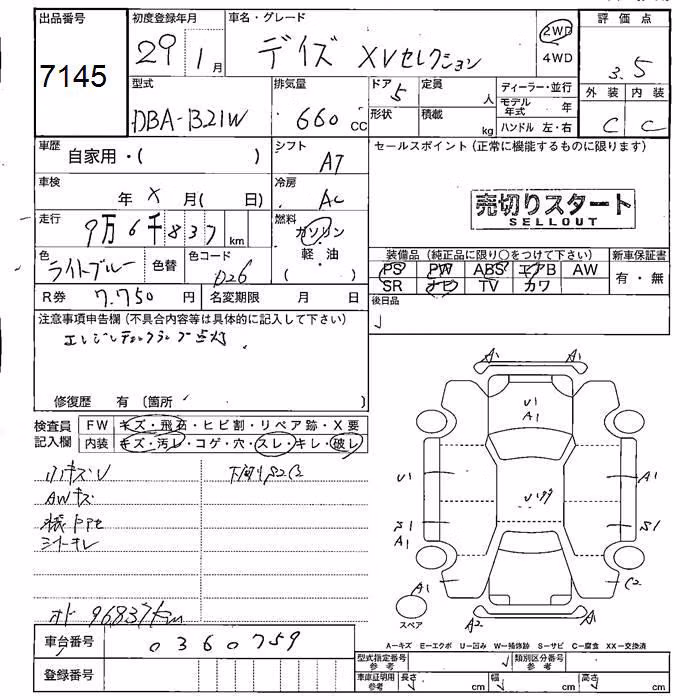 出品番号 初度登録年月 車名・グレード 評価点
7145 29 1月 デイズ XVセレクション 2WD 4WD 3.5
型式 排気量 ドア 定員 ディーラー・並行 外装 内装
DBA-B21W 660 cc 5 人 モデル年式 年 C C
形状 積載 kg ハンドル 左・右
車歴 シフト セールスポイント (正常に機能するものに限ります)
自家用・( ) AT
車検 冷房 売切りスタート
年 X 月( 日) AC SELLOUT
走行 燃料
9万6千837 km ガソリン
色 色替 色コード 軽・油 装備品 (純正品に限り○をつけて下さい) 新車保証書
ライトブルー D26 ( ) PS PW ABS エアB AW 有・無
SR ナビ TV カワ
R券 7.750 円 名変期限 月 日 後日品
注意事項申告欄 (不具合内容等は具体的に記入して下さい)
エンジンチェックランプ点灯
修復歴 有 (箇所 )
検査員 FW キズ・飛石・ヒビ割・リペア跡・X要
記入欄 内装 キズ・汚レ・コゲ・穴・スレ・キレ・破レ
AWキズ
シートキレ
オド 96837km
A1 A1
U1
A1
U1 A1
S1 S1
A1
A1 C2
A2 A1
スペア
A-キズ E-エクボ U-凹み W-補修跡 S-サビ C-腐食 XX-交換済
車台番号 0360759
登録番号
型式指定番号 参考 類別区分番号 参考
車庫証明用 参考 長さ cm 幅 cm 高さ cm